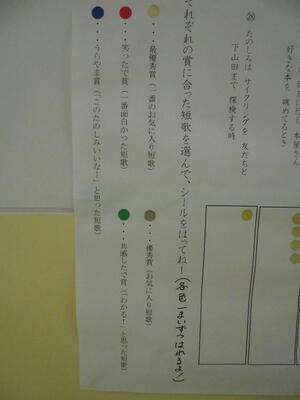 好きな本を 眺めてるとき
㉘
たのしみは サイクリングを 友だちと
下山田まで 探検する時
それぞれの賞に合った短歌を選んで、シールをはってね！（各色一まいずつはれるよ！）
・・・最優秀賞（一番のお気に入り短歌）
・・・優秀賞（お気に入り短歌）
・・・笑ったで賞（一番面白かった短歌）
・・・共感したで賞（「わかる！」と思った短歌）
・・・うらやま賞（「このたのしみいいなー」と思った短歌）